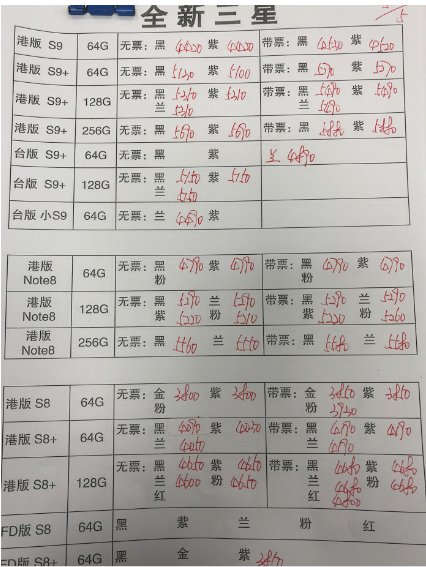 全新三星
港版 S9 64G 无票：黑 4420 紫 4420 带票：黑 4520 紫 4520
港版 S9+ 64G 无票：黑 紫 5100 带票：黑 紫
港版 S9+ 128G 无票：黑 5210 紫 5210 带票：黑 紫
兰 5210 兰
港版 S9+ 256G 无票：黑 5690 紫 5690 带票：黑 5880 紫 5880
台版 S9+ 64G 无票：黑 紫 兰 4890
台版 S9+ 128G 无票：黑 5150 紫 5150
兰 5150
台版 小S9 64G 无票：兰 4490 紫
港版 Note8 64G 无票：黑 4790 紫 4790 带票：黑 4790 紫 4790
粉 粉
港版 Note8 128G 无票：黑 5290 兰 5290 带票：黑 5290 兰 5290
紫 5220 粉 5210 紫 5220 粉 5260
港版 Note8 256G 无票：黑 5560 兰 5550 带票：黑 5580 兰 5580
港版 S8 64G 无票：金 3800 紫 3800 带票：金 3850 紫 3850
粉 粉 3920
港版 S8+ 64G 无票：黑 4090 紫 4020 带票：黑 4190 紫 4190
兰 4050 兰 4190
港版 S8+ 128G 无票：黑 4650 紫 4650 带票：黑 4680 紫 4680
兰 4600 粉 4650 兰 4680 粉 4680
红 红 4800
FD版 S8 64G 黑 紫 兰 粉 红
FD版 S8+ 64G 黑 金 紫